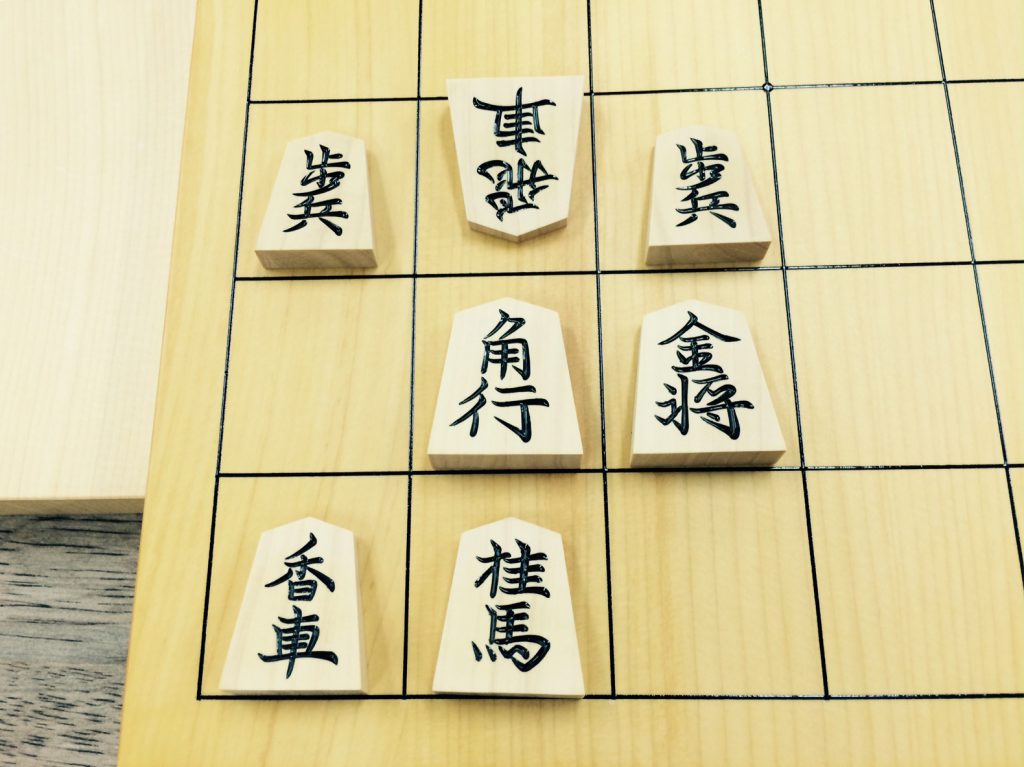 歩兵
飛車
歩兵
角行
金将
香車
桂馬